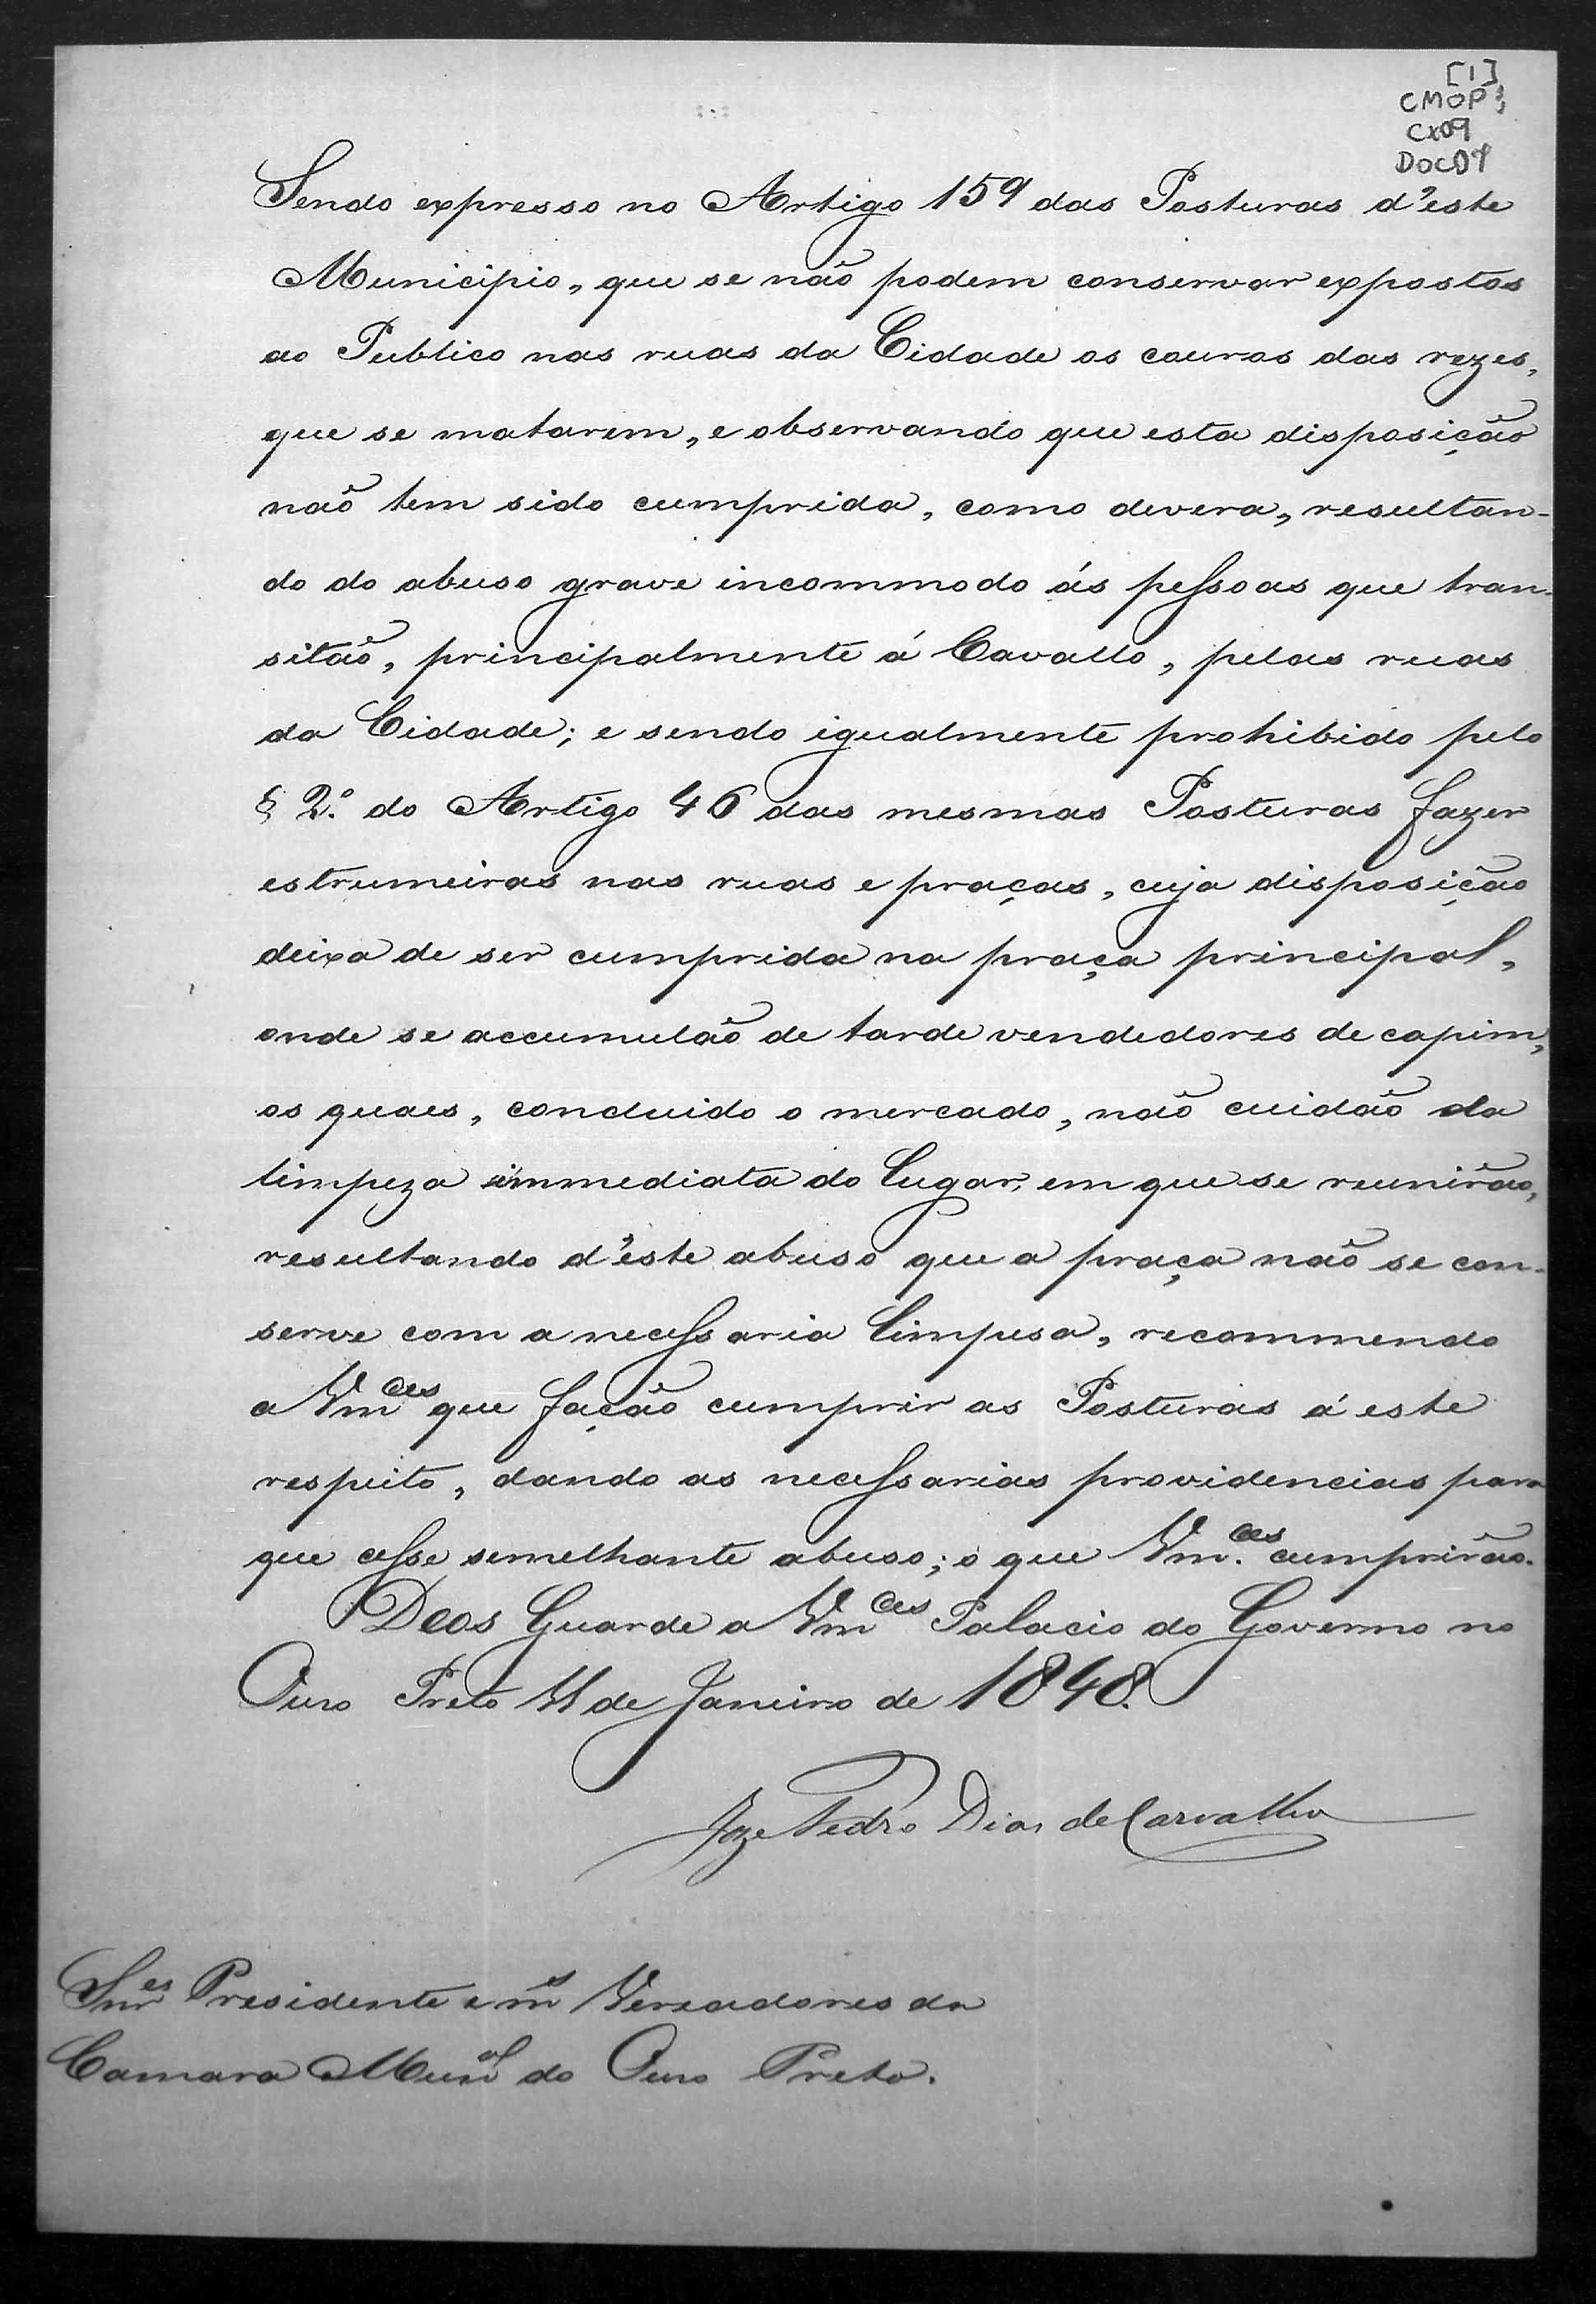 [1]
CMOP;
CX09
DOC01
Sendo expresso no Artigo 159 das Posturas d'este
Municipio, que se não podem conservar expostos
ao Publico nas ruas da Cidade os couros das rezes,
que se matarem, e observando que esta disposição
não tem sido cumprida, como devera, resultan-
do do abuso grave incommodo ás pessoas que tran-
sitão, principalmente á Cavallo, pelas ruas
da Cidade; e sendo igualmente prohibido pelo
§ 2.º do Artigo 46 das mesmas Posturas fazer
estrumeiras nas ruas e praças, cuja disposição
deixa de ser cumprida na praça principal,
onde se accumulão de tarde vendedores de capim,
os quaes, concluido o mercado, não cuidão da
limpeza immediata do lugar, em que se reunirão,
resultando d'este abuso que a praça não se con-
serve com a necessaria limpesa, recommendo
a Vm.ces que fação cumprir as Posturas á este
respeito, dando as necessarias providencias para
que cesse semelhante abuso; o que Vm.ces cumprirão.
Deos Guarde a Vm.ces Palacio do Governo no
Ouro Preto 11 de Janeiro de 1848.
Joze Pedro Dias de Carvalho
Snr.es Presidente e m.s Vereadores da
Camara Mun.al do Ouro Preto.